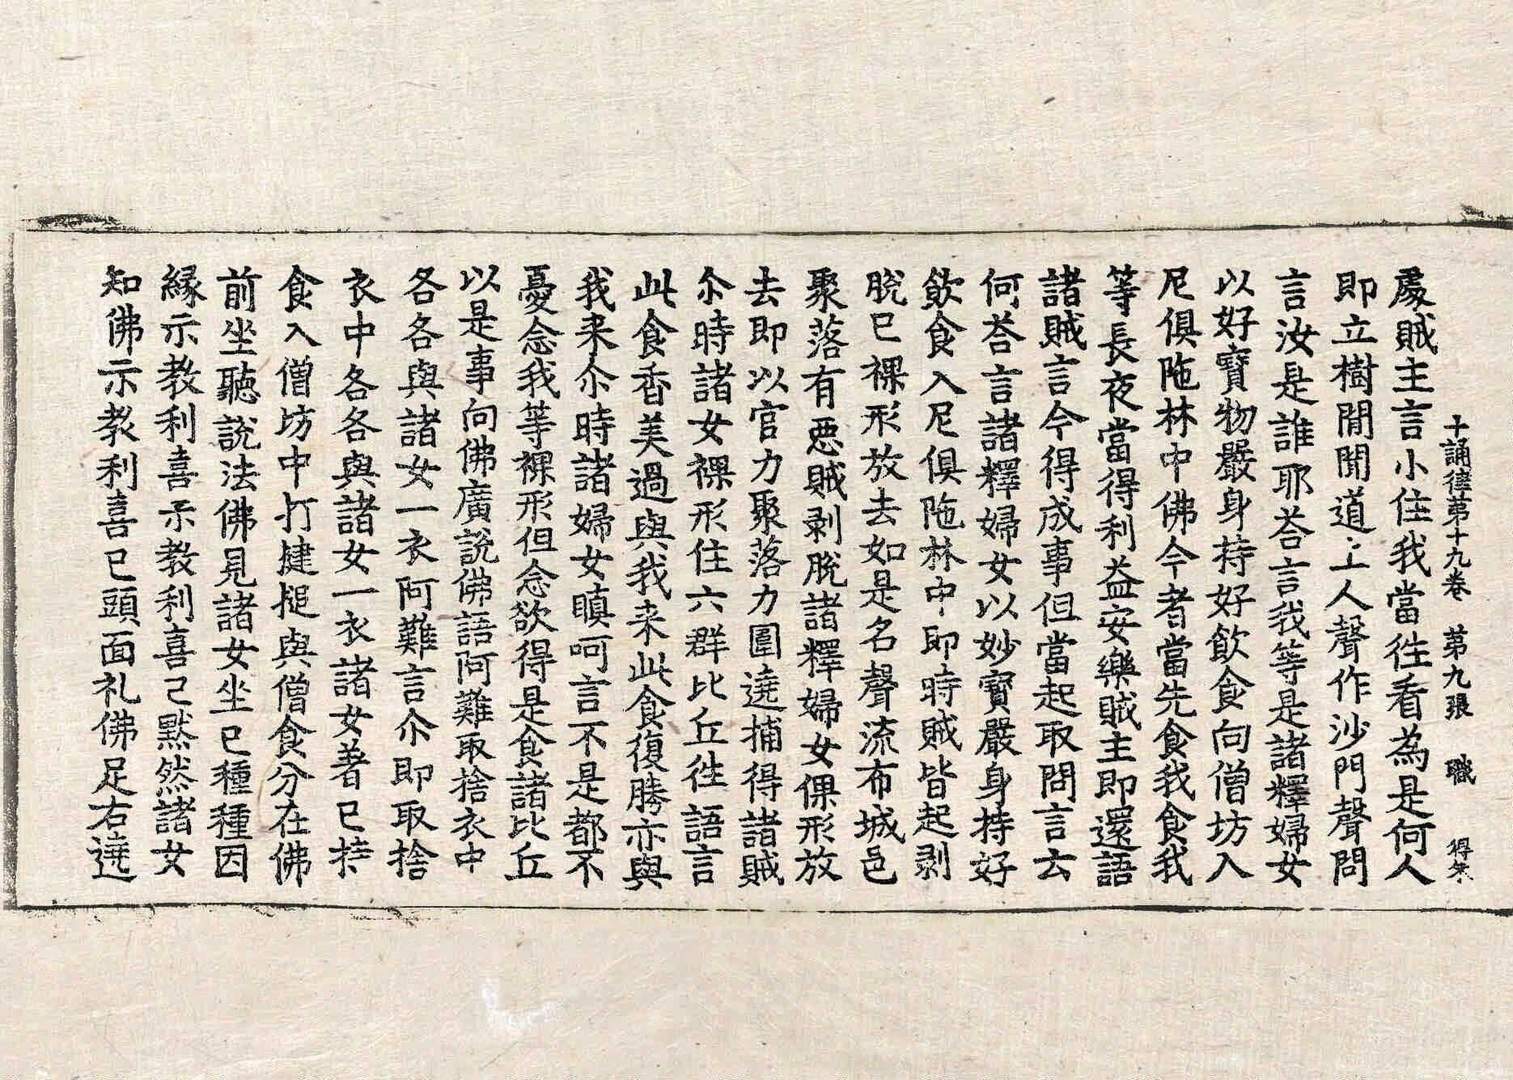 十誦律第十九卷 第九張 職
處賊主言小住我當徃看為是何人
即立樹閒聞道上人聲作沙門聲問
言汝是誰耶荅言我等是諸釋婦女
以好寶物嚴身持好飲食向僧坊入
尼俱陁林中佛今者當先食我食我
等長夜當得利益安樂賊主即還語
諸賊言今得成事但當起取問言云
何荅言諸釋婦女以妙寶嚴身持好
飲食入尼俱陁林中即時賊皆起剥
脫已裸形放去如是名聲流布城邑
聚落有惡賊剥脫諸釋婦女倮形放
去即以官力聚落力圍遶捕得諸賊
尒時諸女裸形住六群比丘徃語言
此食香美過與我来此食復勝亦與
我来尒時諸婦女瞋呵言不是都不
憂念我等裸形但念欲得是食諸比丘
以是事向佛廣說佛語阿難取捨衣中
各各與諸女一衣阿難言尒即取捨
衣中各各與諸女一衣諸女著已持
食入僧坊中打揵搥與僧食分在佛
前坐聽說法佛見諸女坐已種種因
緣示教利喜示教利喜已默然諸女
知佛示教利喜已頭面礼佛足右遶